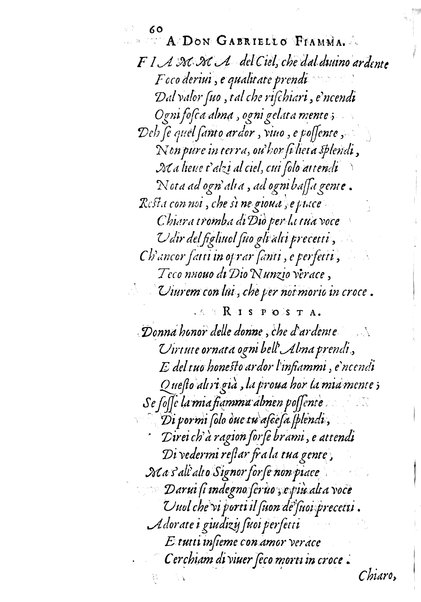 60
A DON GABRIELLO FIAMMA.
FIAMMA del Ciel, che dal diuino ardente
Foco deriui, e qualitate prendi
Dal valor suo, tal che rischiari, e'ncendi
Ogni fosca alma, ogni gelata mente;
Deh se quel santo ardor, viuo, e possente,
Non pure in terra, ou'hor si lieta splendi,
Ma lieue t'alzi al ciel, cui solo attendi
Nota ad ogn'alta, ad ogni bassa gente.
Resta con noi, che sì ne gioua, e piace
Chiara tromba di Dio per la tua voce
Vdir del figliuol suo gli alti precetti,
Ch'ancor fatti in oprar santi, e perfetti,
Teco nuouo di Dio Nunzio verace,
Viurem con lui, che per noi morio in croce.
RISPOSTA.
Donna honor delle donne, che d'ardente
Virtute ornata ogni bell'Alma prendi,
E del tuo honesto ardor l'infiammi, e'ncendi
Questo altri già, la proua hor la mia mente;
Se fosse la mia fiamma almen possente
Di pormi solo òue tu ascesa splendi,
Direi ch'à ragion forse brami, e attendi
Di vedermi restar fra la tua gente,
Ma s'all'alto Signor forse non piace
Darui si indegno seruo, e più alta voce
Vuol che vi porti il suon de'suoi precetti.
Adorate i giudizij suoi perfetti
E tutti insieme con amor verace
Cerchiam di viuer seco morti in croce.
Chiaro,